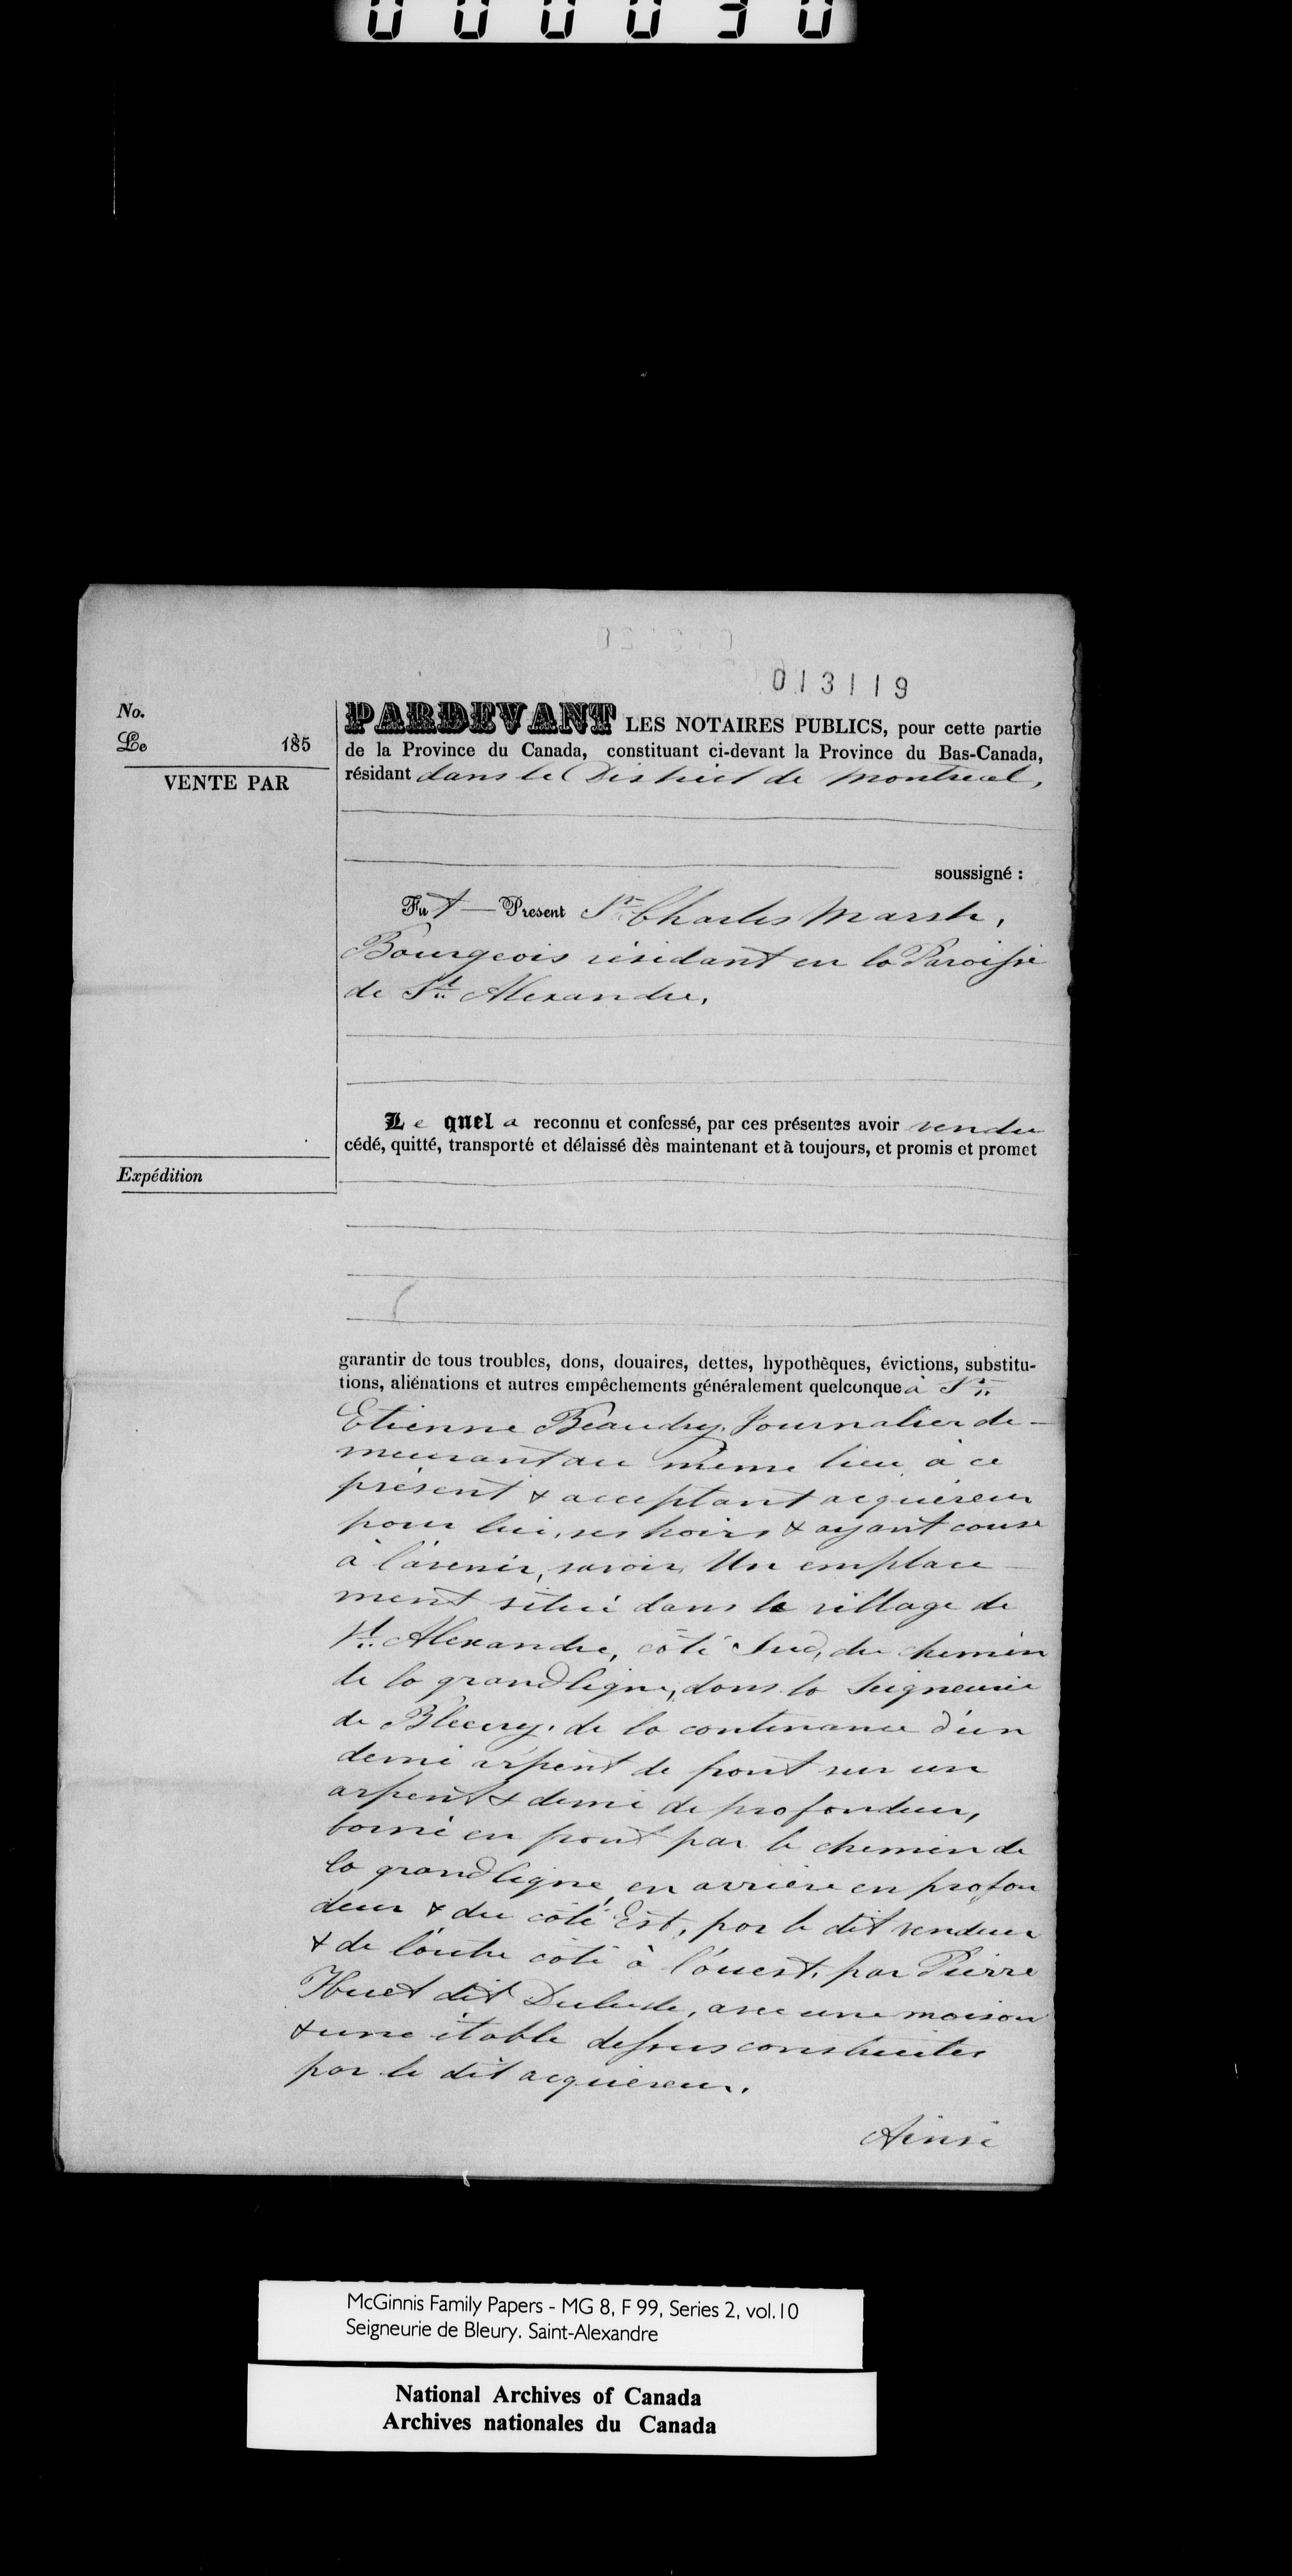 000030
013119
No.
Le 185
VENTE PAR
Expédition
PARDEVANT LES NOTAIRES PUBLICS, pour cette partie
de la Province du Canada, constituant ci-devant la Province du Bas-Canada,
résidant dans le District de Montreal,
soussigné :
Fut — Present Sr. Charles Marsh,
Bourgeois résidant en la Paroisse
de St. Alexandre,
Le quel a reconnu et confessé, par ces présentes avoir vendu
cédé, quitté, transporté et délaissé dès maintenant et à toujours, et promis et promet
garantir de tous troubles, dons, douaires, dettes, hypothèques, évictions, substitu-
tions, aliénations et autres empêchements généralement quelconque à Sr.
Etienne Beaudry, Journalier de-
meurant au même lieu à ce
présent & acceptant acquéreur
pour lui, ses hoirs & ayant cause
à l'avenir, savoir, Un emplace-
ment situé dans le village de
St. Alexandre, côté Sud, du chemin
de la grand ligne, dans la Seigneurie
de Bleury, de la contenance d'un
demi arpent de front sur un
arpent & demi de profondeur,
borné en front par le chemin de
la grand ligne, en arrière en profon
deur & du côté Est, par le dit vendeur
& de l'autre côté à l'ouest, par Pierre
Huet dit Dulude, avec une maison
& une étable dessus construites
par le dit acquéreur.
Ainsi
McGinnis Family Papers - MG 8, F 99, Series 2, vol.10
Seigneurie de Bleury. Saint-Alexandre
National Archives of Canada
Archives nationales du Canada